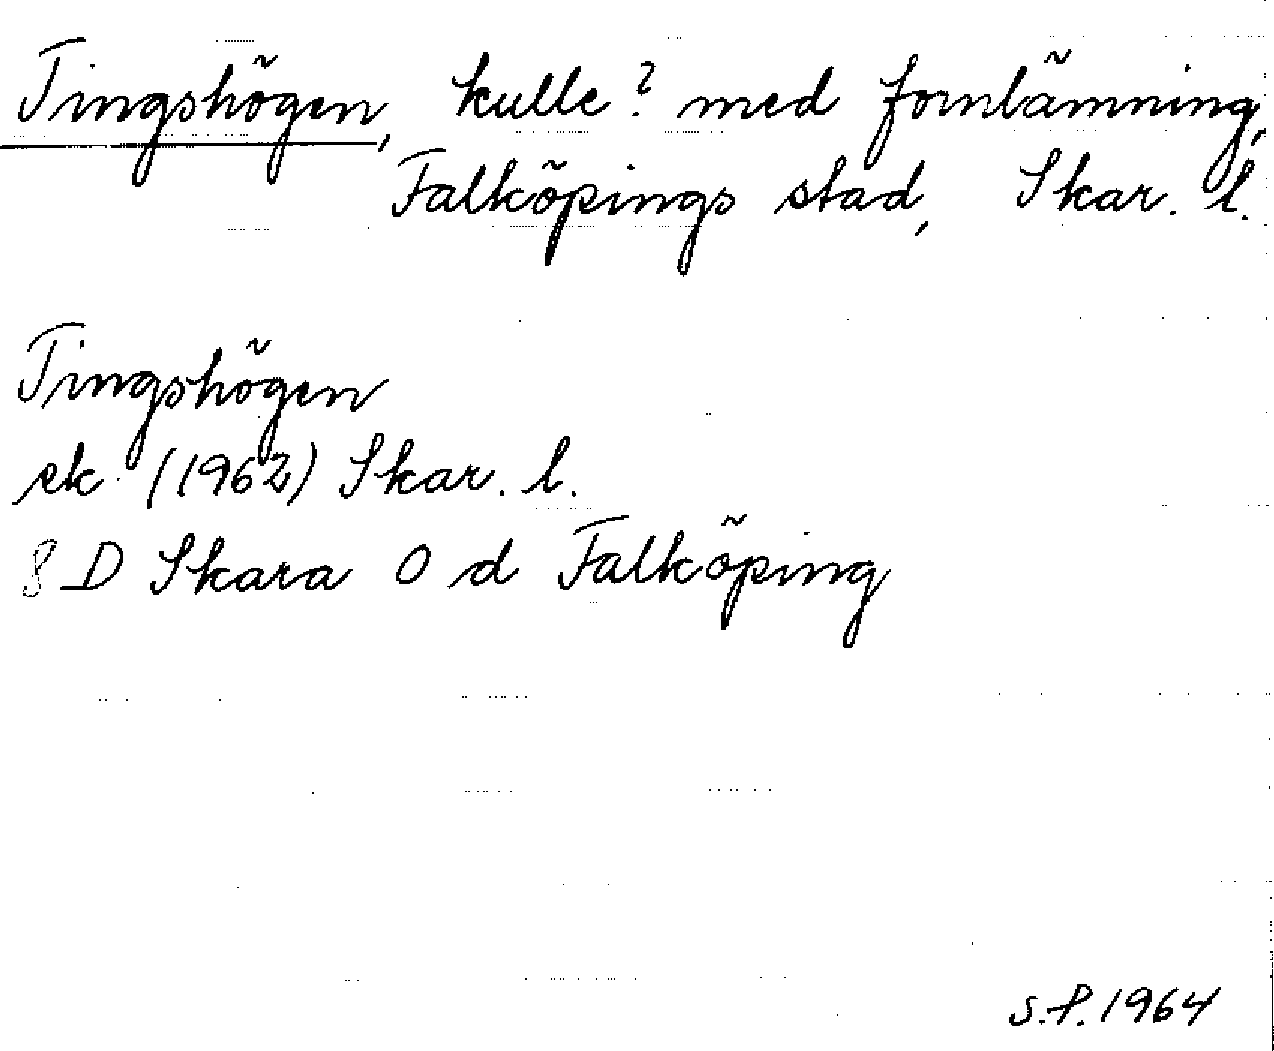 Tingshögen, kulle? med fornlämning,
Falköpings stad, Skar. l.
Tingshögen
ek (1962) Skar. l.
8 D Skara 0 d Falköping
S.P. 1964